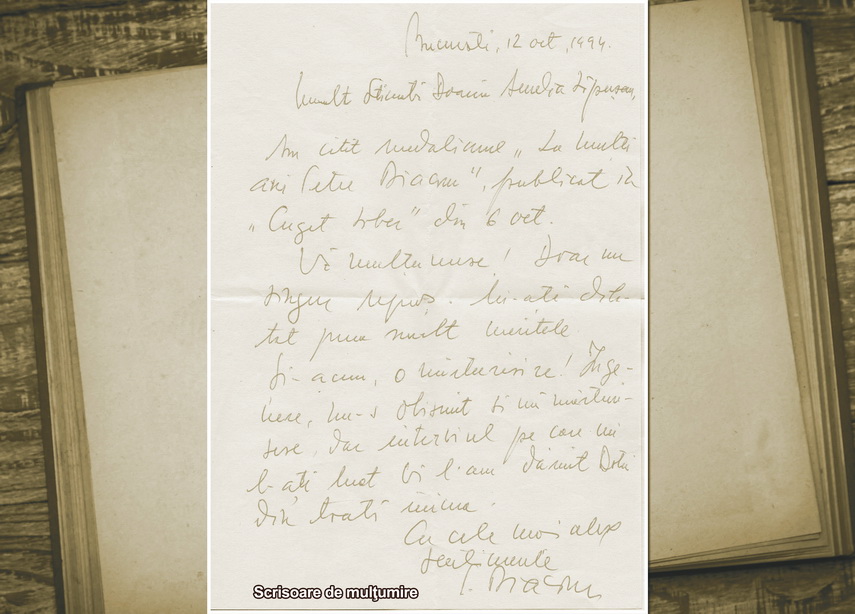 București, 12 oct, 1994.
Mult Stimată Doamnă Amelia
Am citit medalionul „La mulți
ani Petre Diaconu”, publicat în
„Cuget liber” din 6 oct.
Vă mulțumesc! Doar un
singur repros. Mi-ați dila-
tat prea mult meritele.
Și-acum, o mărturisire! În ge-
nere, nu-s obișnuit să mă mărturi-
sesc, dar interviul pe care mi
l-ați luat vi l-am dăruit
din toată inima.
Cu cele mai alese
sentimente
P. Diaconu
Scrisoare de mulţumire